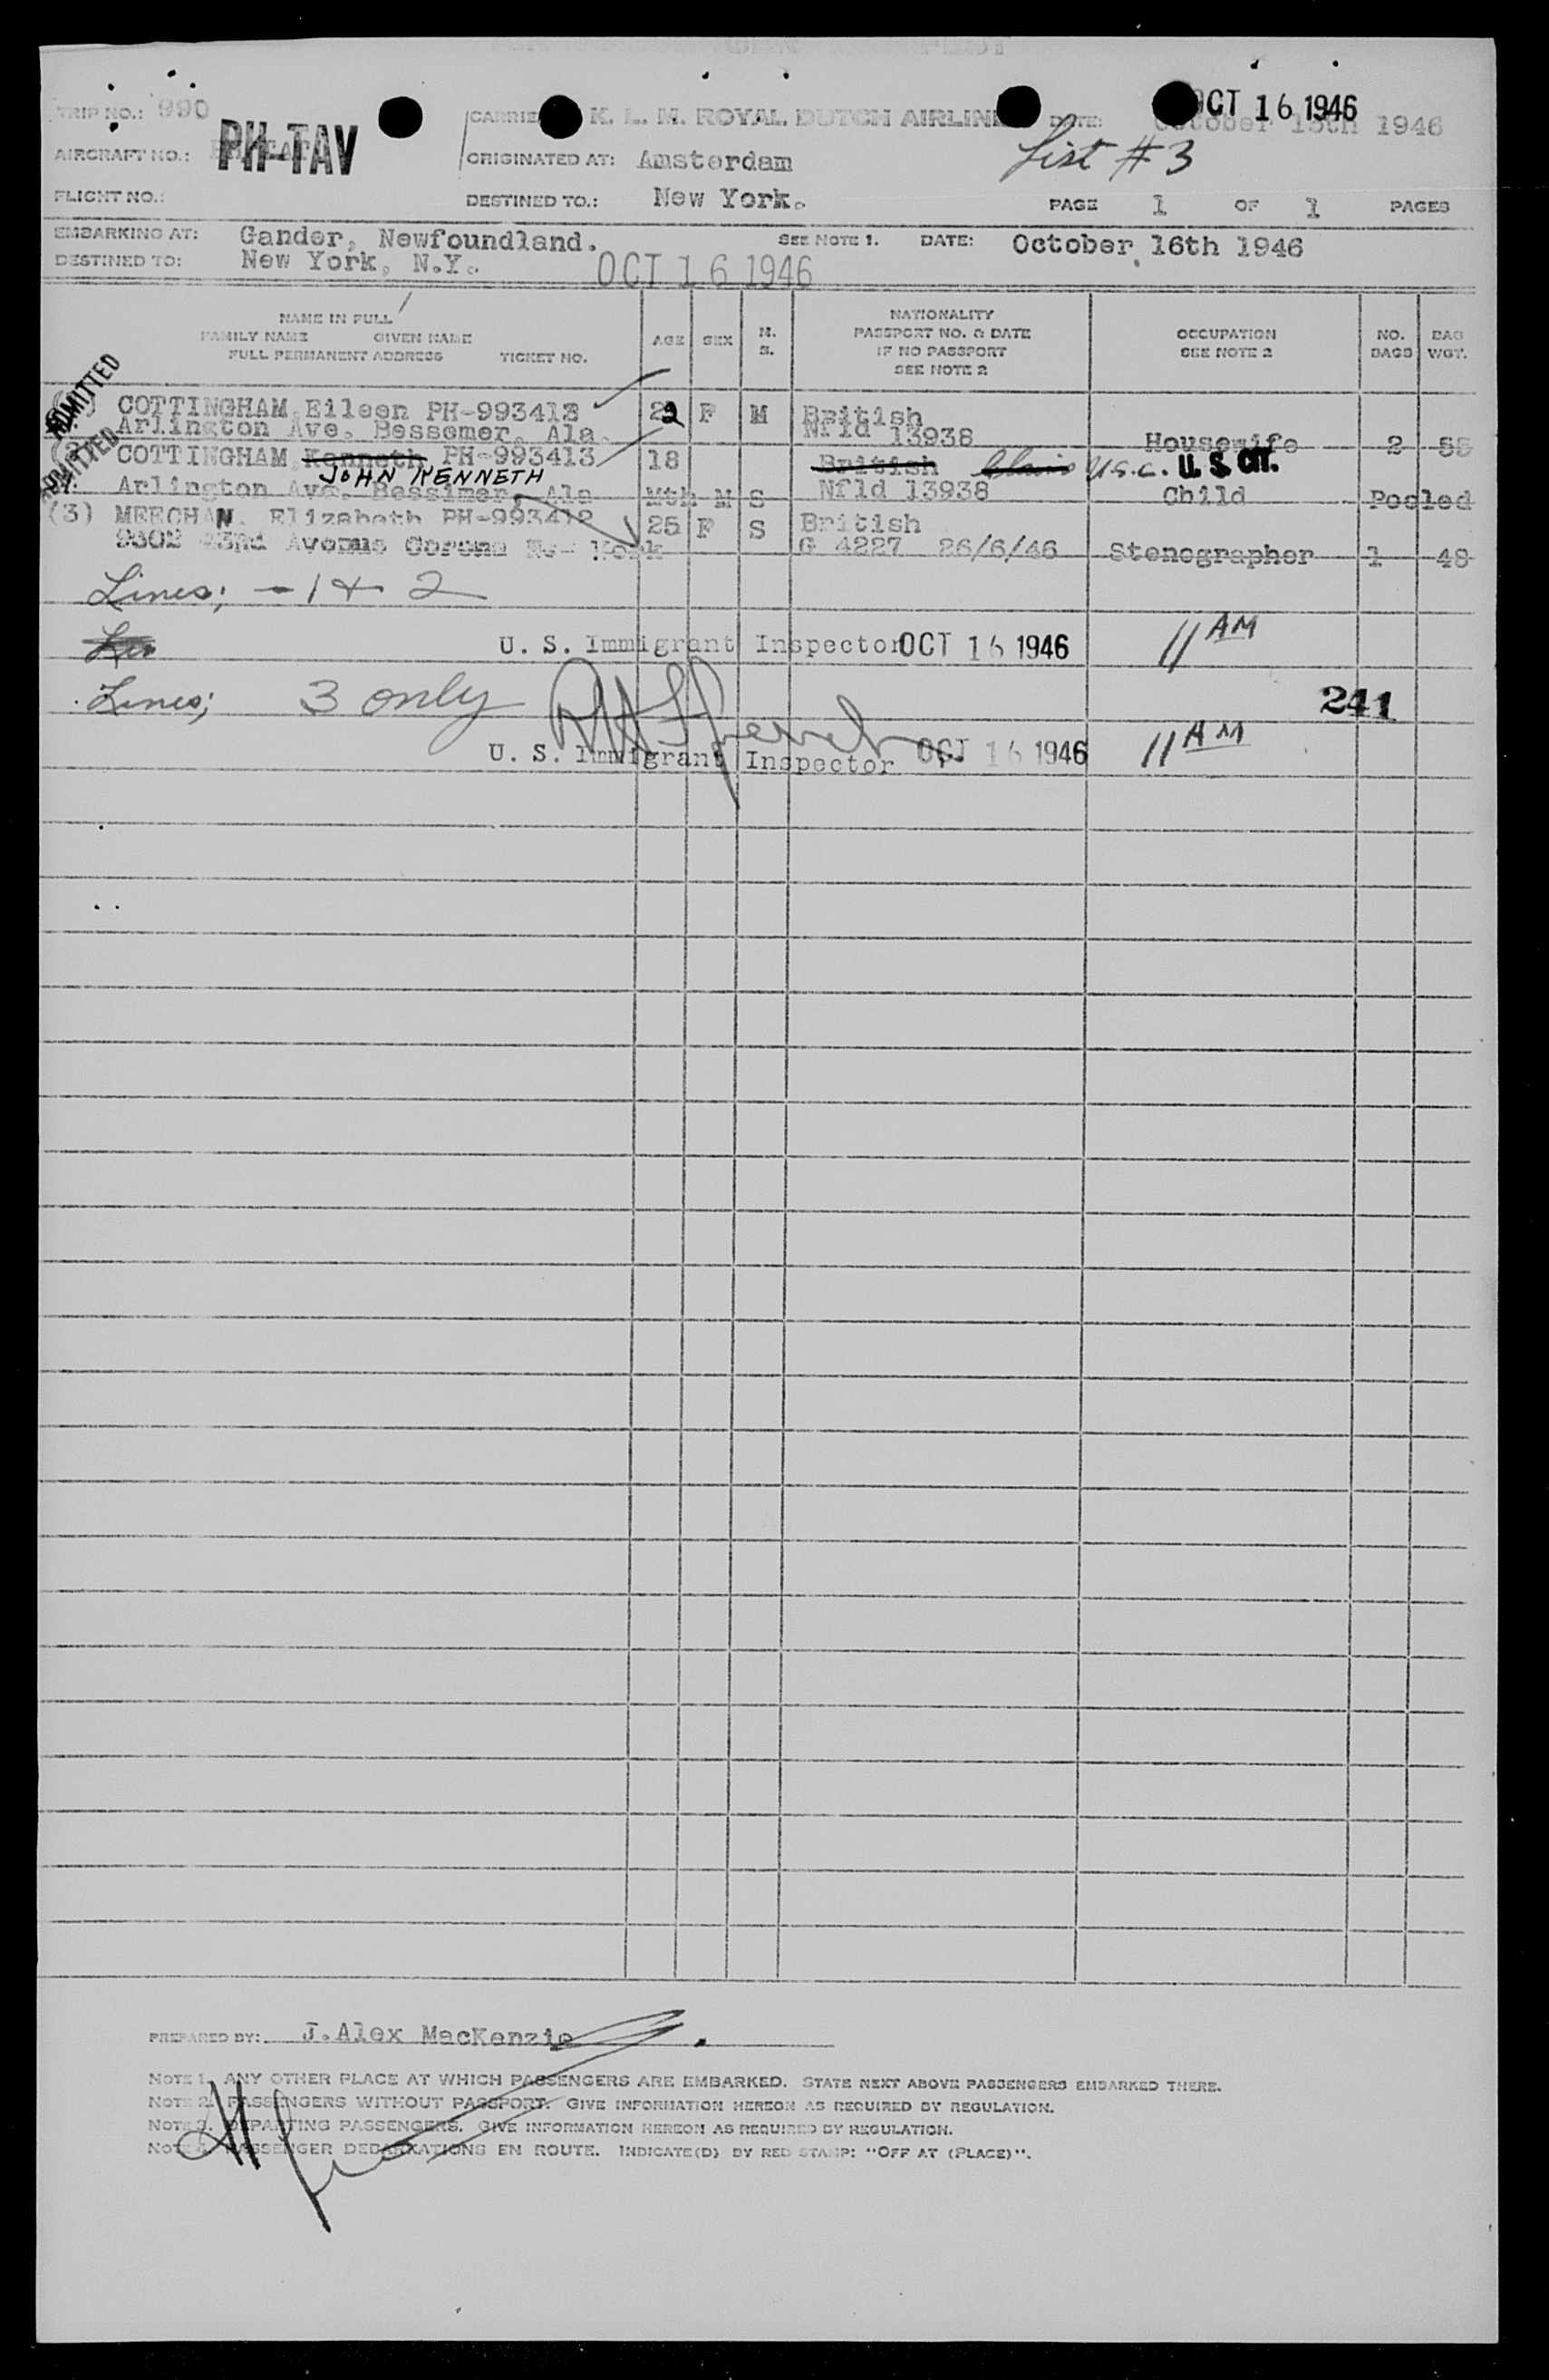 TRIP NO.: 990 CARRIE K. L. M. ROYAL DUTCH AIRLIN DATE: October 15th 1946
OCT 16 1946
AIRCRAFT NO.: PH-TAV ORIGINATED AT: Amsterdam List #3
FLIGHT NO.: DESTINED TO.: New York. PAGE 1 OF 1 PAGES
EMBARKING AT: Gander, Newfoundland. SEE NOTE 1. DATE: October 16th 1946
DESTINED TO: New York, N.Y. OCT 16 1946
NAME IN FULL
FAMILY NAME GIVEN NAME
FULL PERMANENT ADDRESS TICKET NO.
AGE SEX M. S.
NATIONALITY
PASSPORT NO. & DATE
IF NO PASSPORT
SEE NOTE 2
OCCUPATION
SEE NOTE 2
NO. BAGS
BAG WGT.
ADMITTED
COTTINGHAM, Eileen PH-993412 22 F M British
Arlington Ave. Bessemer, Ala. Nfld 13938 Housewife 2 55
ADMITTED
COTTINGHAM, Kenneth PH-993413 18 British Claims U.S.C. U. S. CIT.
JOHN KENNETH
Arlington Ave. Bessimer, Ala Mth M S Nfld 13938 Child Pooled
(3) MEECHAN, Elizabeth PH-993412 25 F S British
9602 43rd Avenue Corona New York G 4227 26/6/46 Stenographer 1 48
Lines; - 1 + 2
U. S. Immigrant Inspector OCT 16 1946 11 AM
Lines; 3 only
241
U. S. Immigrant Inspector OCT 16 1946 11 AM
PREPARED BY: J.Alex MacKenzie
NOTE 1. ANY OTHER PLACE AT WHICH PASSENGERS ARE EMBARKED. STATE NEXT ABOVE PASSENGERS EMBARKED THERE.
NOTE 2. PASSENGERS WITHOUT PASSPORT. GIVE INFORMATION HEREON AS REQUIRED BY REGULATION.
NOTE 3. DEPARTING PASSENGERS. GIVE INFORMATION HEREON AS REQUIRED BY REGULATION.
NOTE 4. PASSENGER DEBARKATIONS EN ROUTE. INDICATE(D) BY RED STAMP: "OFF AT (PLACE)".